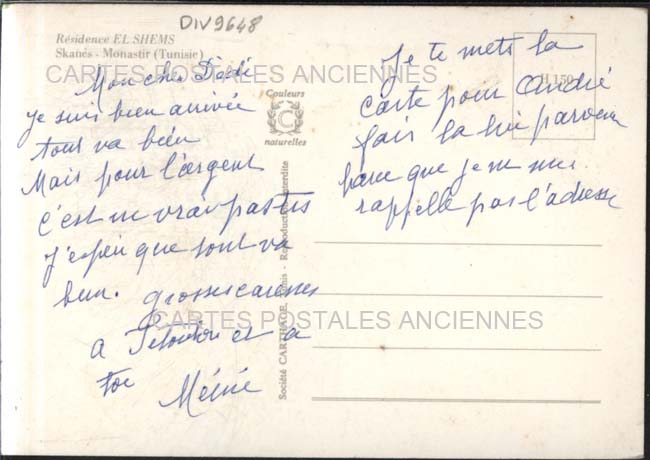 DIV9648
Résidence EL SHEMS
Skanès - Monastir (Tunisie)
CARTES POSTALES ANCIENNES
Mon cher Dédé
Je suis bien arrivée
tout va bien
Mais pour l'argent
c'est
J'espère que tout va
bien. grosses caresses
a et a
toi
Mémé
Couleurs
C
naturelles
Société CARTHAGE, Tunis - Reproduction interdite
H 150
Je te mets la
carte pour André
fais la lui parvenir
parce que je ne me
rappelle pas l'adresse
CARTES POSTALES ANCIENNES